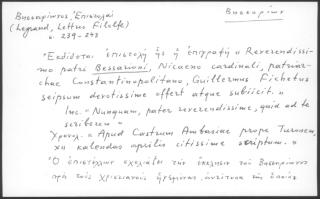 Βησσαρίωνος Ἐπιστολαί
Βησσαρίων
(Legrand, Lettres Filelfe)
σ. 239-243
"Ἐκδίδεται ἐπιστολὴ ἧς ἡ ἐπιγραφὴ "Reverendissi-
mo patri Bessarioni, Nicaeno cardinali, patriar-
chae Constantinopolitano, Guillermus Fichetus
seipsum devotissime offert atque subiicit."
Inc. "Nunquam, pater reverendissime, quid ad te
scriberem"
Χρονολ. "Apud Castrum Ambasiae prope Turonem,
XII kalendas aprilis citissime scriptum."
Ὁ ἐπιστέλλων σχολιάζει τὴν ἔκκλησιν τοῦ Βησσαρίωνος
πρὸς τοὺς χριστιανοὺς ἡγεμόνας, τῆς ὁποίας